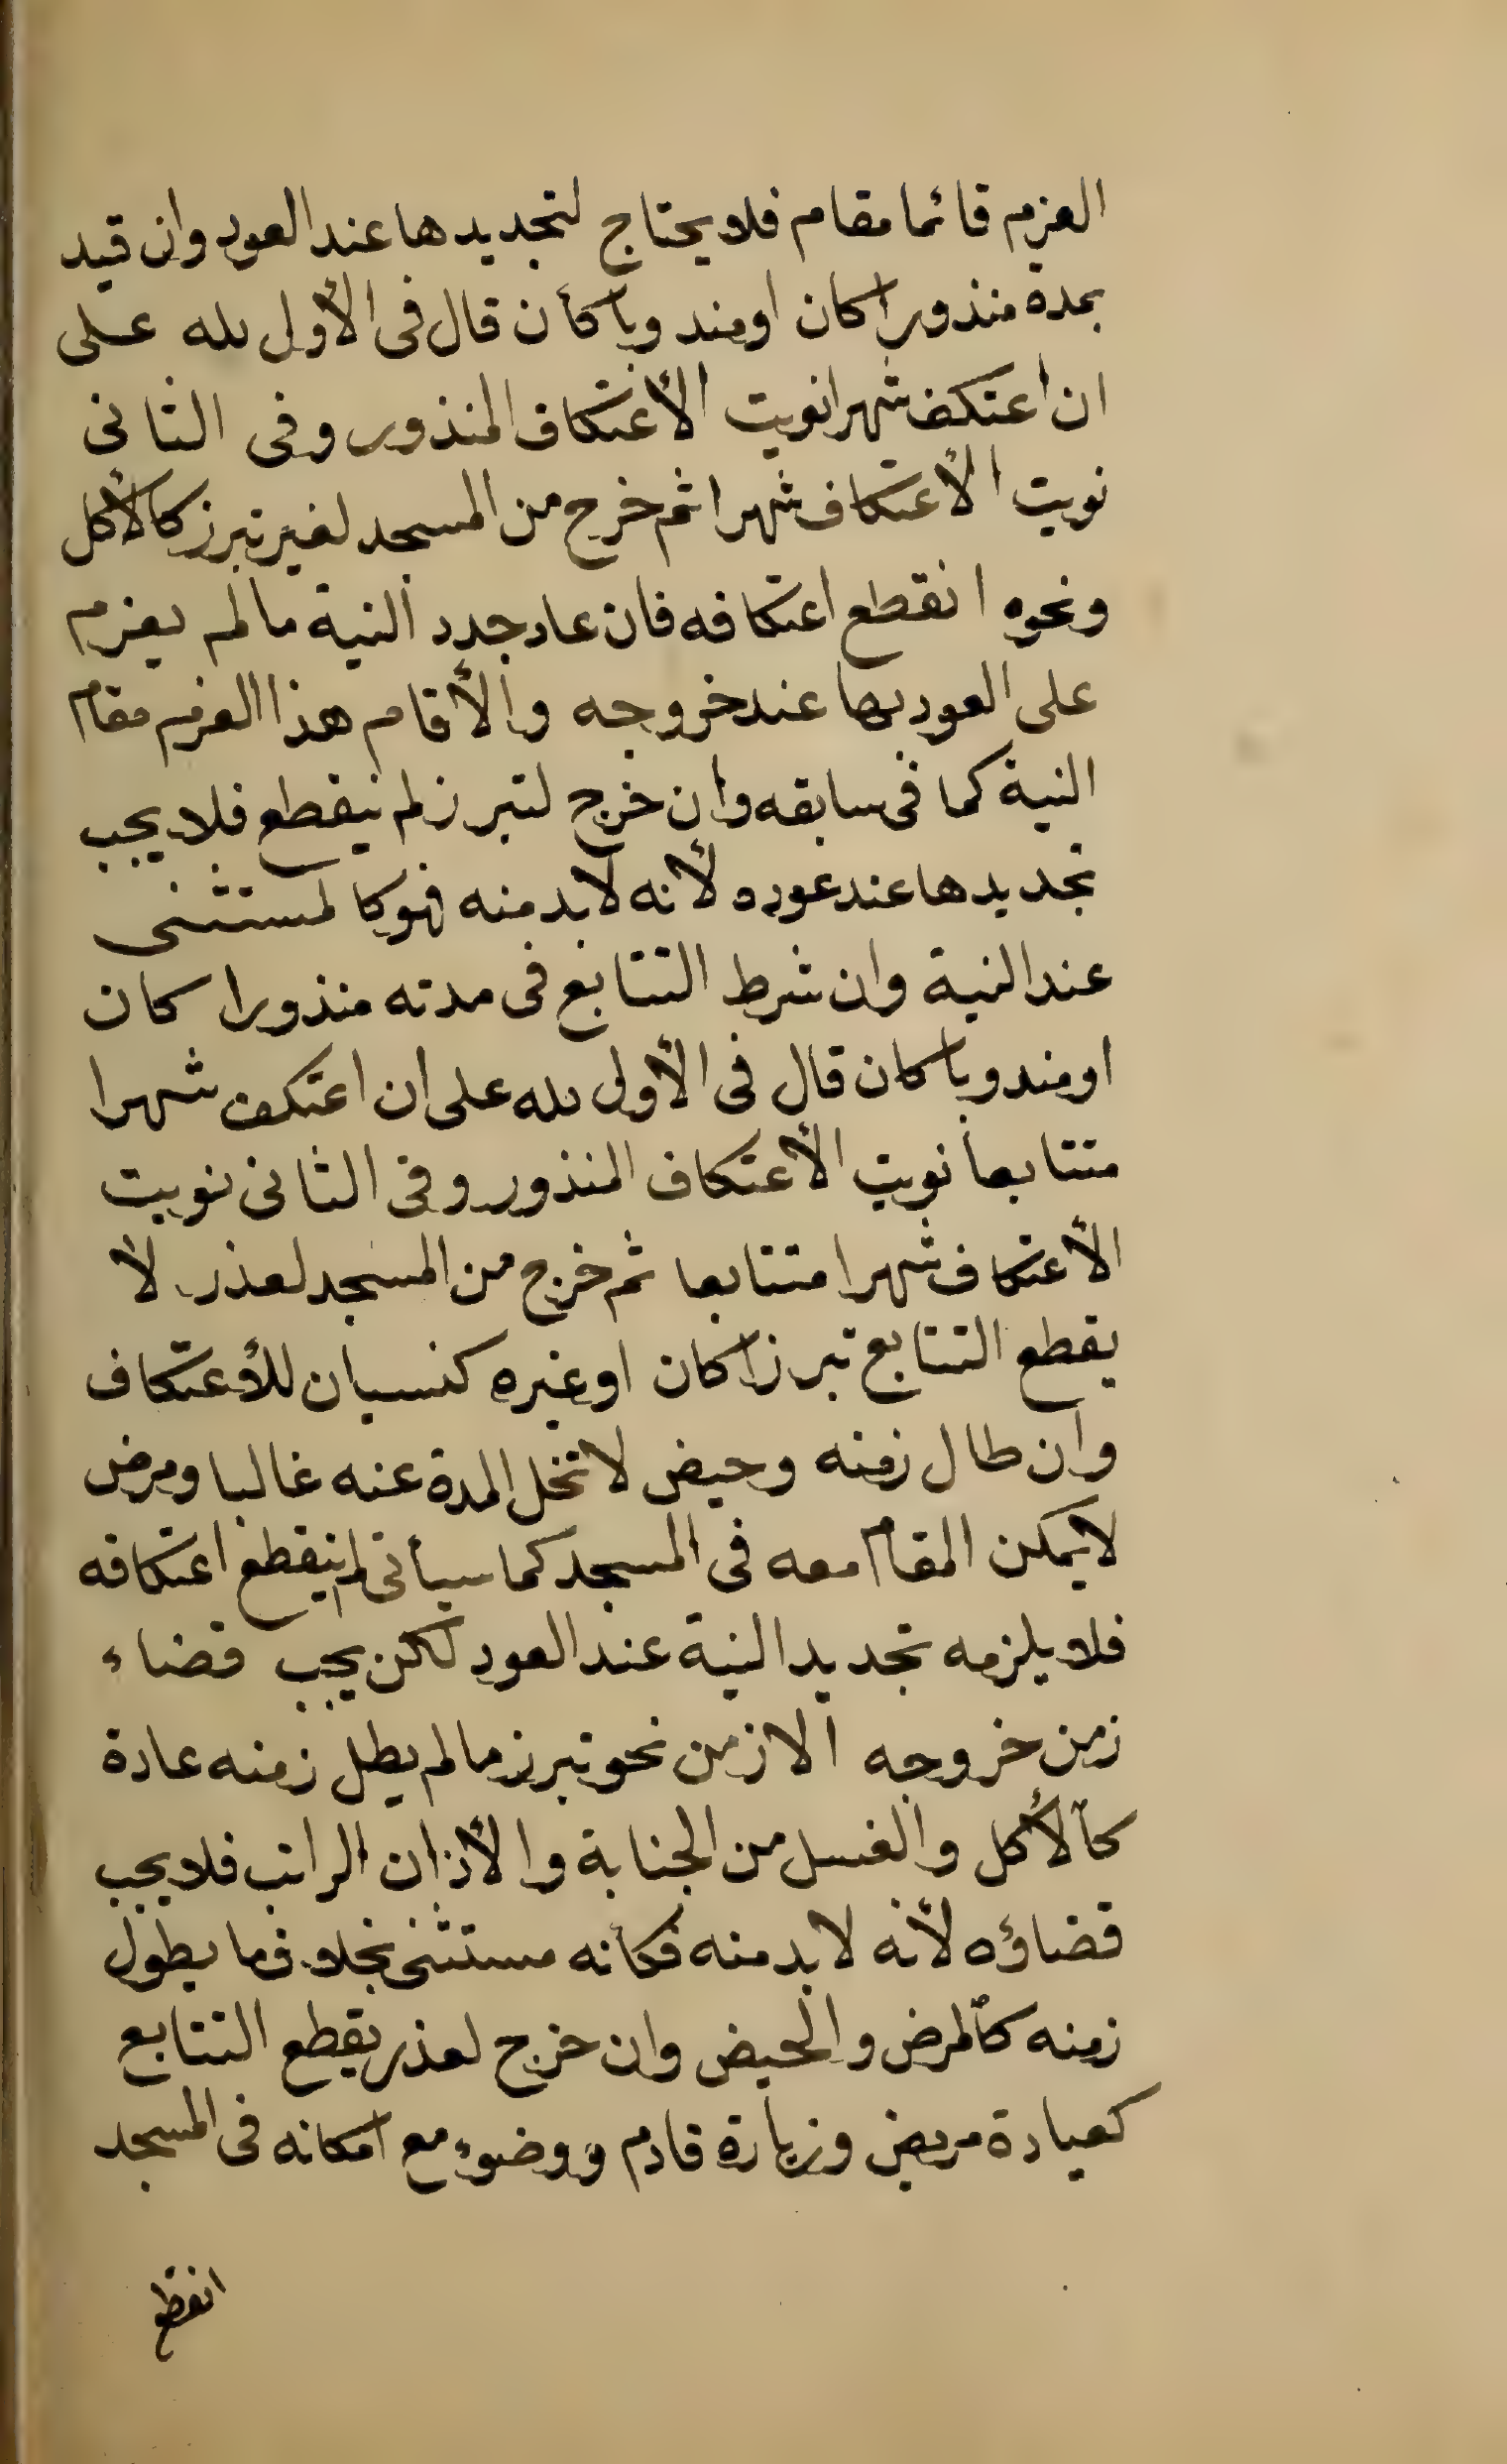 العزم قائما مقام فلا يحتاج لتجديدها عند العود وان قيد
بمدة منذورا كان او مندوبا كأن قال فى الأول لله على
ان اعتكف شهرا نويت الأعتكاف المنذور وفى الثانى
نويت الأعتكاف شهرا ثم خرج من المسجد لغير تبرز كالأكل
ونحوه انقطع اعتكافه فان عاد جدد النية ما لم يعزم
على العود بها عند خروجه والأقام هذا العزم مقام
النية كما فى سابقه وان خرج لتبرز لم ينقطع فلا يجب
تجديدها عند عوده لأنه لابد منه فهو كالمستثنى
عند النية وان شرط التتابع فى مدته منذورا كان
او مندوبا كان قال فى الأول لله على ان اعتكف شهرا
متتابعا نويت الأعتكاف المنذور وفى الثانى نويت
الأعتكاف شهرا متتابعا ثم خرج من المسجد لعذر لا
يقطع التتابع تبرزا كان او غيره كنسيان للأعتكاف
وان طال زمنه وحيض لا تخل المدة عنه غالبا ومرض
لا يمكن المقام معه فى المسجد كما سيأتى لم ينقطع اعتكافه
فلا يلزمه تجديد النية عند العود لكن يجب قضاء
زمن خروجه الا زمن نحو تبرز مالم يطل زمنه عادة
كالأكل والغسل من الجنابة والأذان الراتب فلا يجب
قضاؤه لأنه لابد منه فكأنه مستثنى بخلاف ما يطول
زمنه كالمرض والحيض وان خرج لعذر يقطع التتابع
كعيادة مريض وزيارة قادم ووضوء مع امكانه فى المسجد
انقطع